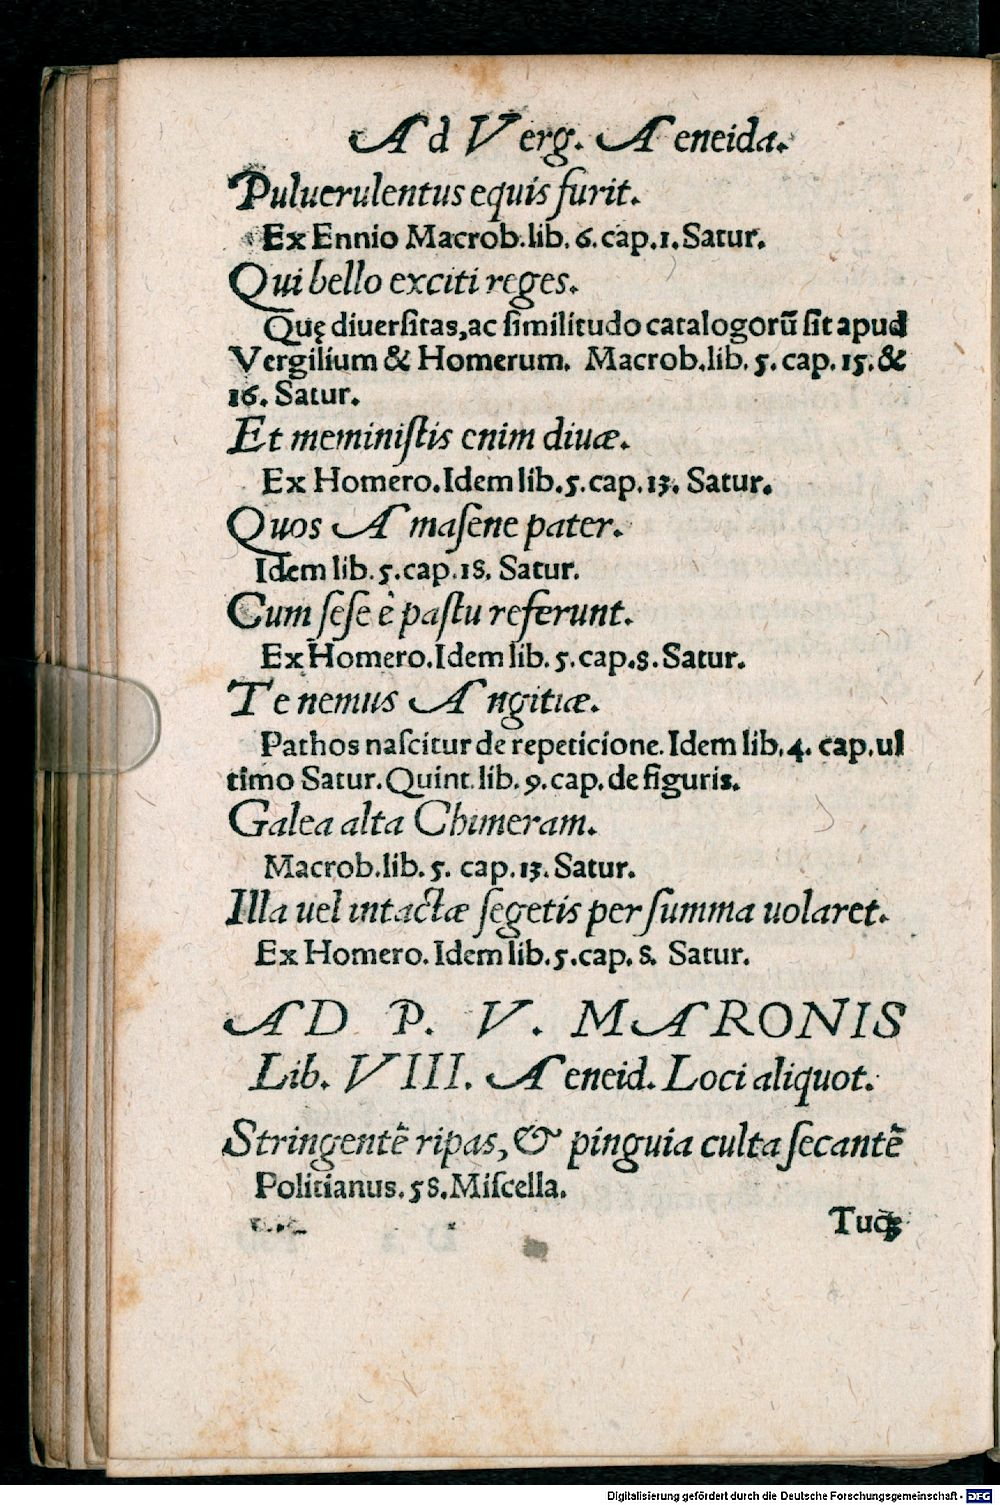 Ad Verg. Aeneida.
Puluerulentus equis furit.
Ex Ennio Macrob.lib. 6. cap.1. Satur.
Qui bello exciti reges.
Quę diuersitas,ac similitudo catalogorũ sit apud
Vergilium & Homerum. Macrob.lib. 5. cap. 15.&
16. Satur.
Et meministis enim diuæ.
Ex Homero. Idem lib. 5. cap. 13. Satur.
Quos Amasene pater.
Idem lib. 5. cap. 18. Satur.
Cum sese è pastu referunt.
Ex Homero. Idem lib. 5. cap. 8. Satur.
Te nemus Angitiæ.
Pathos nascitur de repeticione. Idem lib. 4. cap. ul
timo Satur. Quint. lib. 9. cap. de figuris.
Galea alta Chimeram.
Macrob.lib. 5. cap. 13. Satur.
Illa uel intactæ segetis per summa uolaret.
Ex Homero. Idem lib. 5. cap. 8. Satur.
AD P. V. MARONIS
Lib. VIII. Aeneid. Loci aliquot.
Stringentẽ ripas, & pinguia culta secantẽ
Politianus. 58. Miscella.
Tuqꝫ
Digitalisierung gefördert durch die Deutsche Forschungsgemeinschaft - DFG